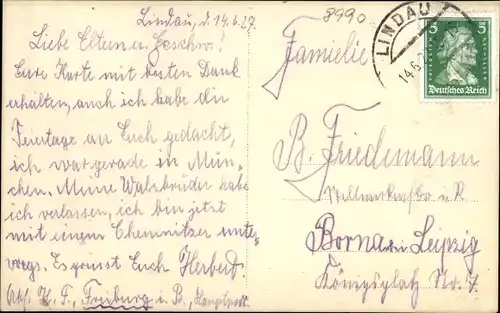 Lindau, d. 14.6.27.
Liebe Eltern u. Geschw.!
Eure Karte mit besten Dank
erhalten, auch ich habe die
Feiertage an Euch gedacht,
ich war gerade in Mün-
chen. Meine Walzbrüder habe
ich verlassen, ich bin jetzt
mit einem Chemnitzer unter-
wegs. Es grüsst Euch Herbert
H. F., Freiburg i. B., Hauptpost.
8990
LINDAU
14.6.
5 5
FRIEDRICH
Deutsches Reich
Familie
B. Friedemann
Borna bei Leipzig
Königsplatz No. 7